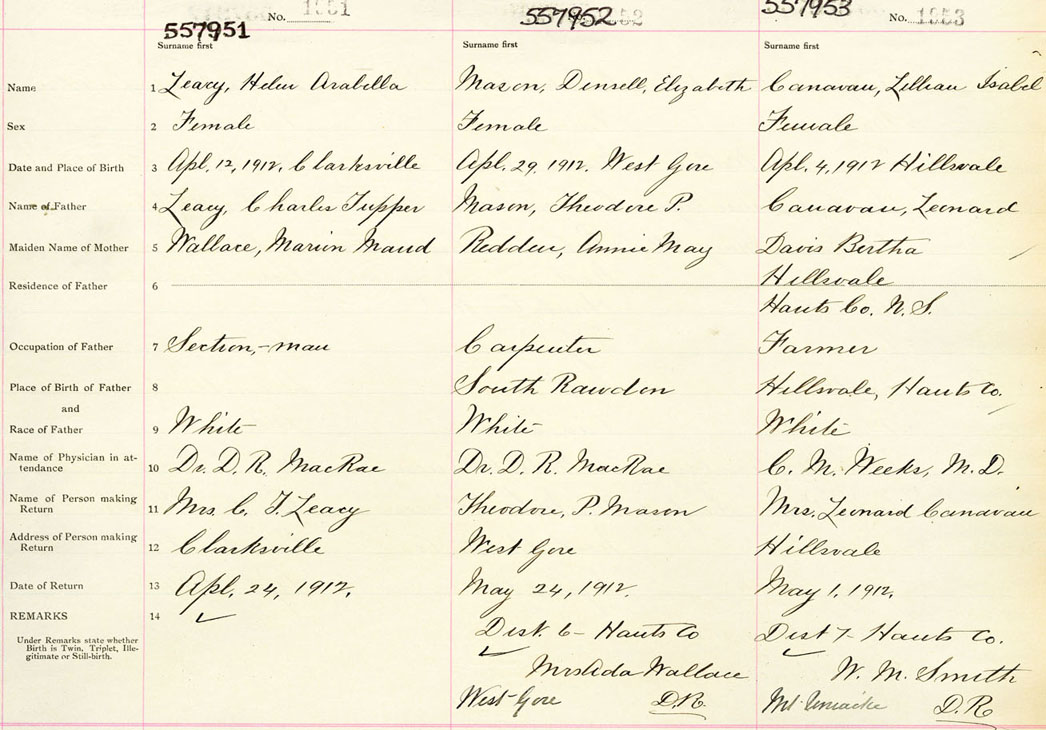 No. 1951 No. 1952 No. 1953
557951 557952 557953
Surname first Surname first Surname first
Name 1 Leacy, Helen Arabella Mason, Densell, Elizabeth Canavan, Lillian Isabel
Sex 2 Female Female Female
Date and Place of Birth 3 Apl. 12, 1912, Clarksville Apl. 29, 1912. West Gore Apl. 4, 1912 Hillsvale
Name of Father 4 Leacy, Charles Tupper Mason, Theodore P. Canavan, Leonard
Maiden Name of Mother 5 Wallace, Marion Maud Redden, Annie May Davis Bertha
Residence of Father 6 Hillsvale
Hants Co. N.S.
Occupation of Father 7 Section,-man Carpenter Farmer
Place of Birth of Father 8 South Rawdon Hillsvale, Hants Co.
and
Race of Father 9 White White White
Name of Physician in at-
tendance 10 Dr. D. R. MacRae Dr. D. R. MacRae C. M. Weeks, M.D.
Name of Person making
Return 11 Mrs. C. T. Leacy Theodore, P. Mason Mrs. Leonard Canavan
Address of Person making
Return 12 Clarksville West Gore Hillsvale
Date of Return 13 Apl. 24, 1912. May 24, 1912. May 1, 1912.
REMARKS 14
Under Remarks state whether
Birth is Twin, Triplet, Ille-
gitimate or Still-birth.
Dist. 6 - Hants Co Dist 7 - Hants Co.
Mrs Ada Wallace W. M. Smith
West Gore D.R. Mt Uniacke D.R